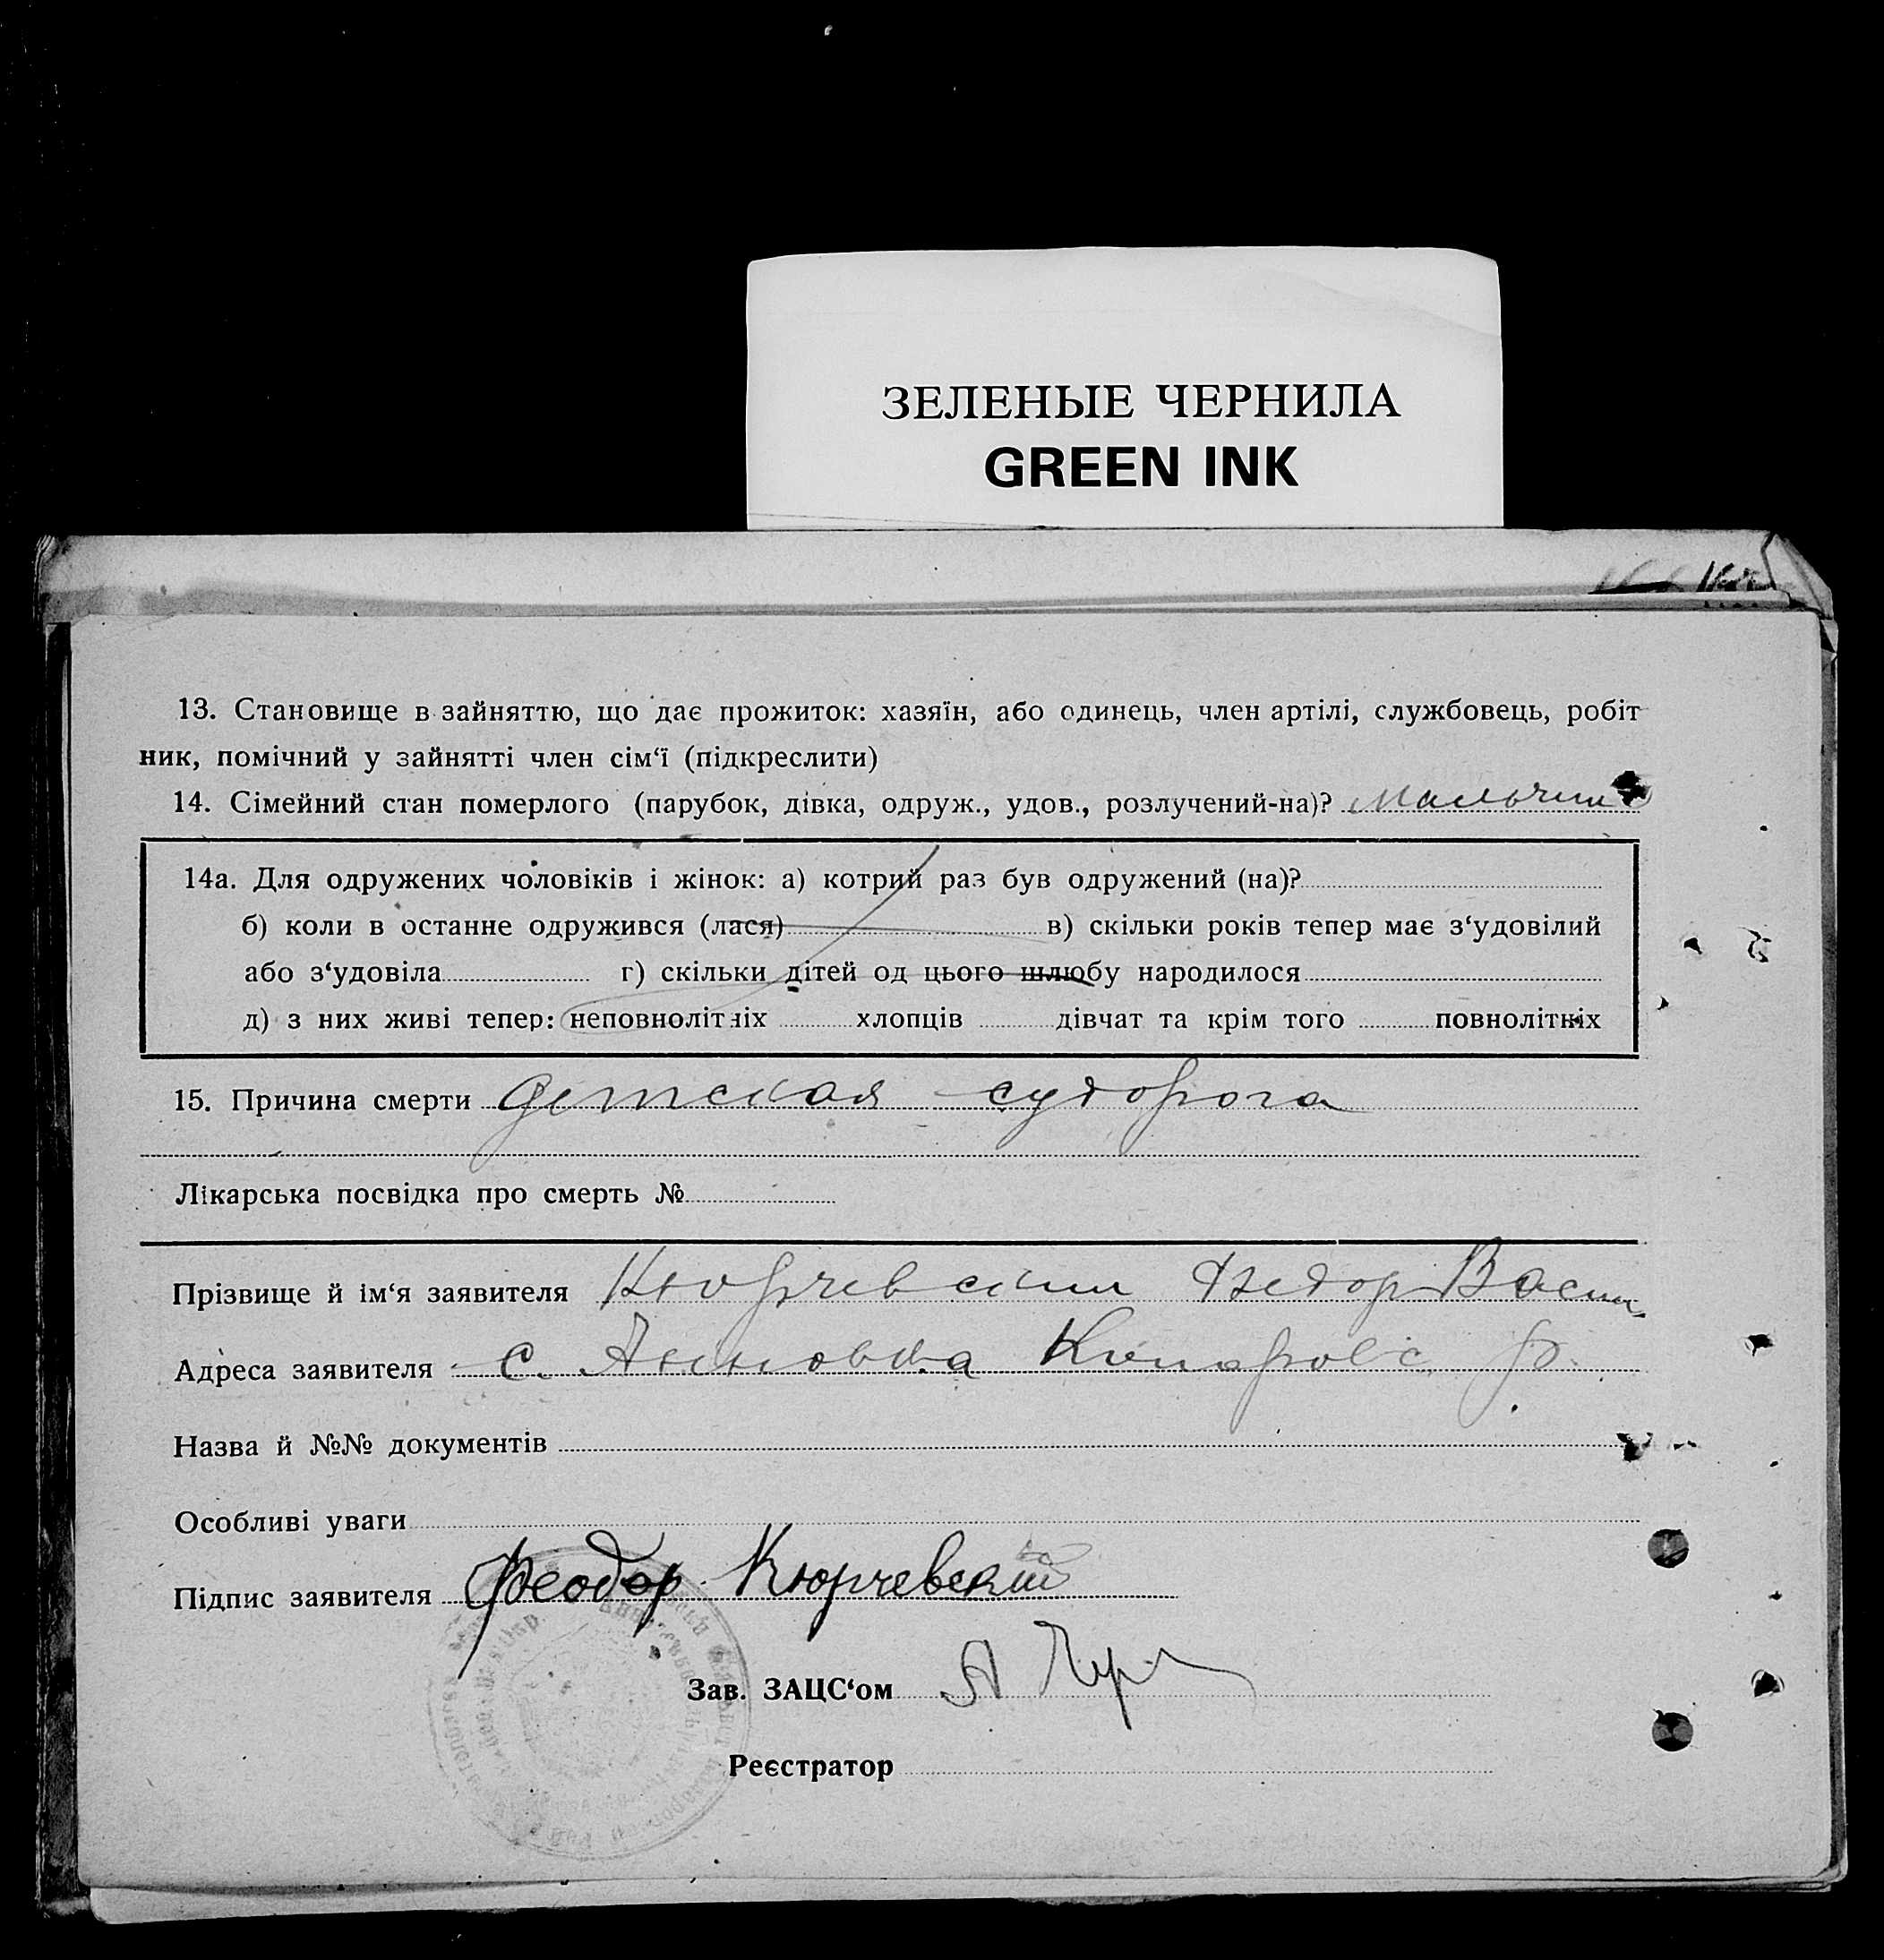 ЗЕЛЕНЫЕ ЧЕРНИЛА
GREEN INK
13. Становище в зайняттю, що дає прожиток: хазяїн, або одинець, член артілі, службовець, робіт
ник, помічний у зайнятті член сім‘ї (підкреслити)
14. Сімейний стан померлого (парубок, дівка, одруж., удов., розлучений-на)? мальчик
14а. Для одружених чоловіків і жінок: а) котрий раз був одружений (на)?
б) коли в останне одружився (лася) в) скільки років тепер має з‘удовілий
або з‘удовіла г) скільки дітей од цього шлюбу народилося
д) з них живі тепер: неповнолітніх хлопців дівчат та крім того повнолітніх
15. Причина смерти Детская судорога
Лікарська посвідка про смерть №
Прізвище й ім‘я заявителя Кюрчевский Федор Васил.
Адреса заявителя с. Анновка р.
Назва й №№ документів
Особливі уваги
Підпис заявителя Феодор Кюрчевский
Зав. ЗАЦС‘ом А
Реєстратор